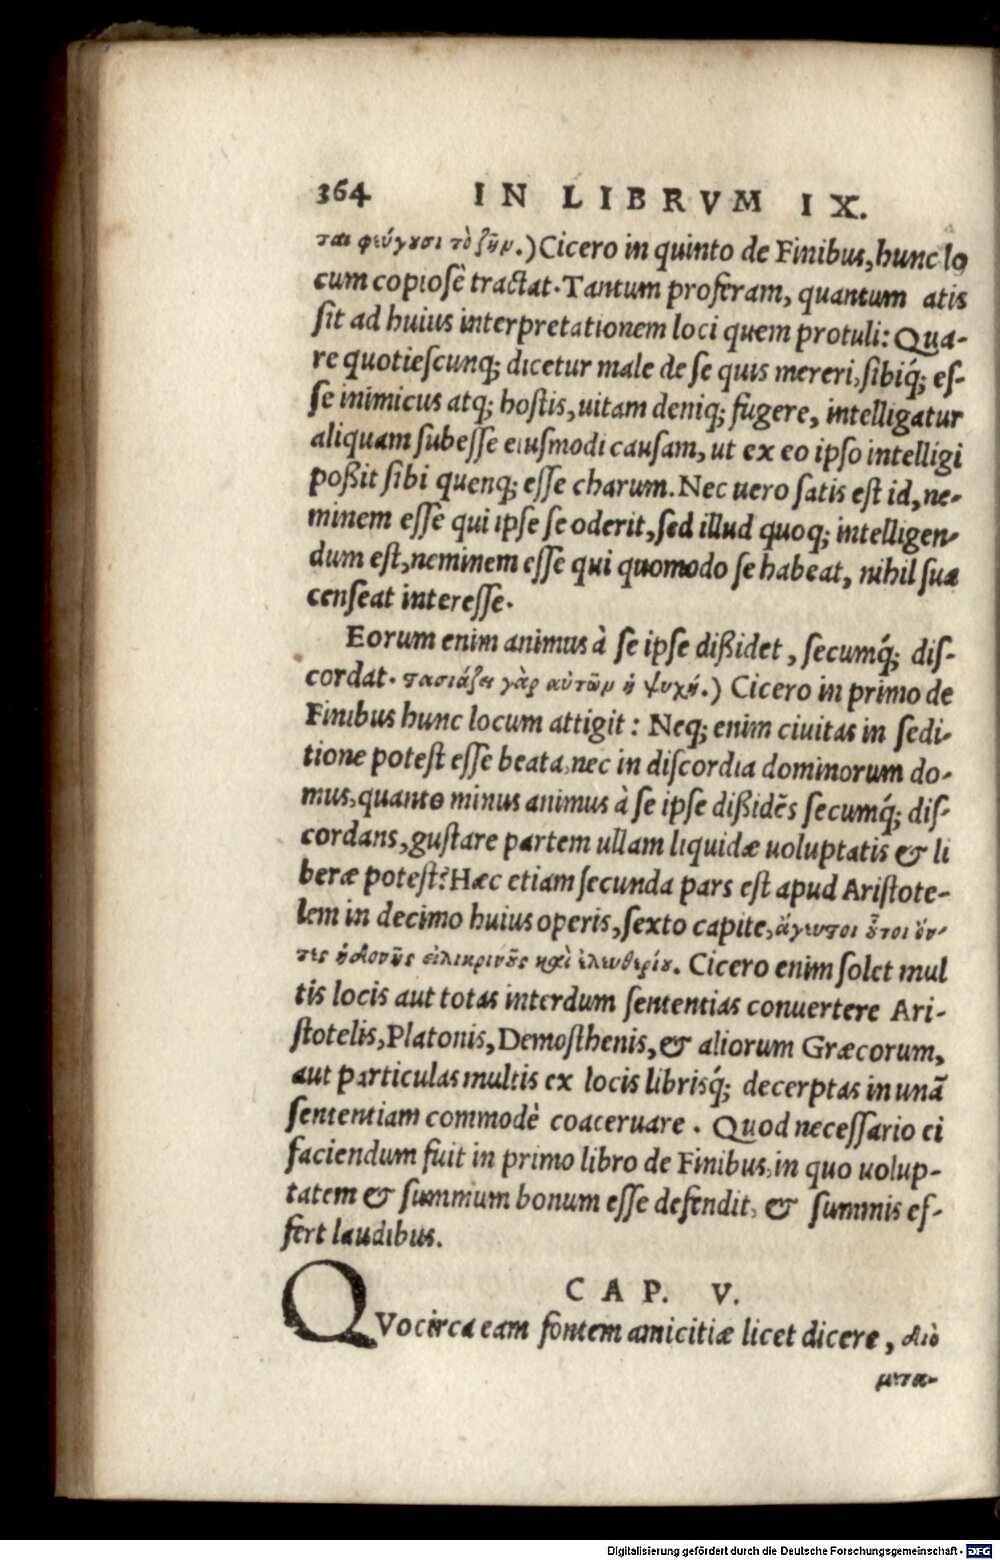 364 IN LIBRVM IX.
ται φεύγουσι τὸ ζῆν.) Cicero in quinto de Finibus, hunc lo
cum copiosè tractat. Tantum proferam, quantum atis
sit ad huius interpretationem loci quem protuli: Qua-
re quotiescunq; dicetur male de se quis mereri, sibiq́; es-
se inimicus atq; hostis, uitam deniq; fugere, intelligatur
aliquam subesse eiusmodi causam, ut ex eo ipso intelligi
poßit sibi quenq; esse charum. Nec uero satis est id, ne-
minem esse qui ipse se oderit, sed illud quoq; intelligen-
dum est, neminem esse qui quomodo se habeat, nihil sua
censeat interesse.
Eorum enim animus à se ipse dißidet, secumq́; dis-
cordat. στασιάζει γὰρ αὐτῶν ἡ ψυχή.) Cicero in primo de
Finibus hunc locum attigit: Neq; enim ciuitas in sedi-
tione potest esse beata, nec in discordia dominorum do-
mus, quanto minus animus à se ipse dißidẽs secumq́; dis-
cordans, gustare partem ullam liquidæ uoluptatis & li
beræ potest? Hæc etiam secunda pars est apud Aristote-
lem in decimo huius operis, sexto capite, ἄγευστοι οὗτοι ὄν-
τες ἡδονῆς εἰλικρινοῦς καὶ ἐλευθερίου. Cicero enim solet mul
tis locis aut totas interdum sententias conuertere Ari-
stotelis, Platonis, Demosthenis, & aliorum Græcorum,
aut particulas multis ex locis librisq́; decerptas in unã
sententiam commodè coaceruare. Quod necessario ei
faciendum fuit in primo libro de Finibus, in quo uolup-
tatem & summum bonum esse defendit, & summis ef-
fert laudibus.
CAP. V.
QVocirca eam fontem amicitiæ licet dicere, διὸ
μετα-
Digitalisierung gefördert durch die Deutsche Forschungsgemeinschaft - DFG